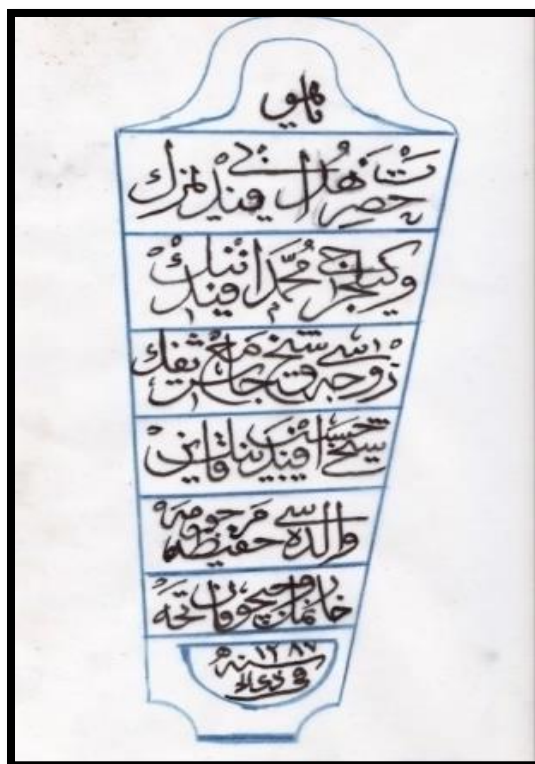 يا هو
حضرت هدائی افندیمزك
وكیلخرجی محمد افندینك
زوجه سی شیخ جامع شریفك
شیخی افندینك قاین
والده سی مرحومه حفیظه
خانمك روحیچون فاتحه
سنه ١٢٨٧
فی